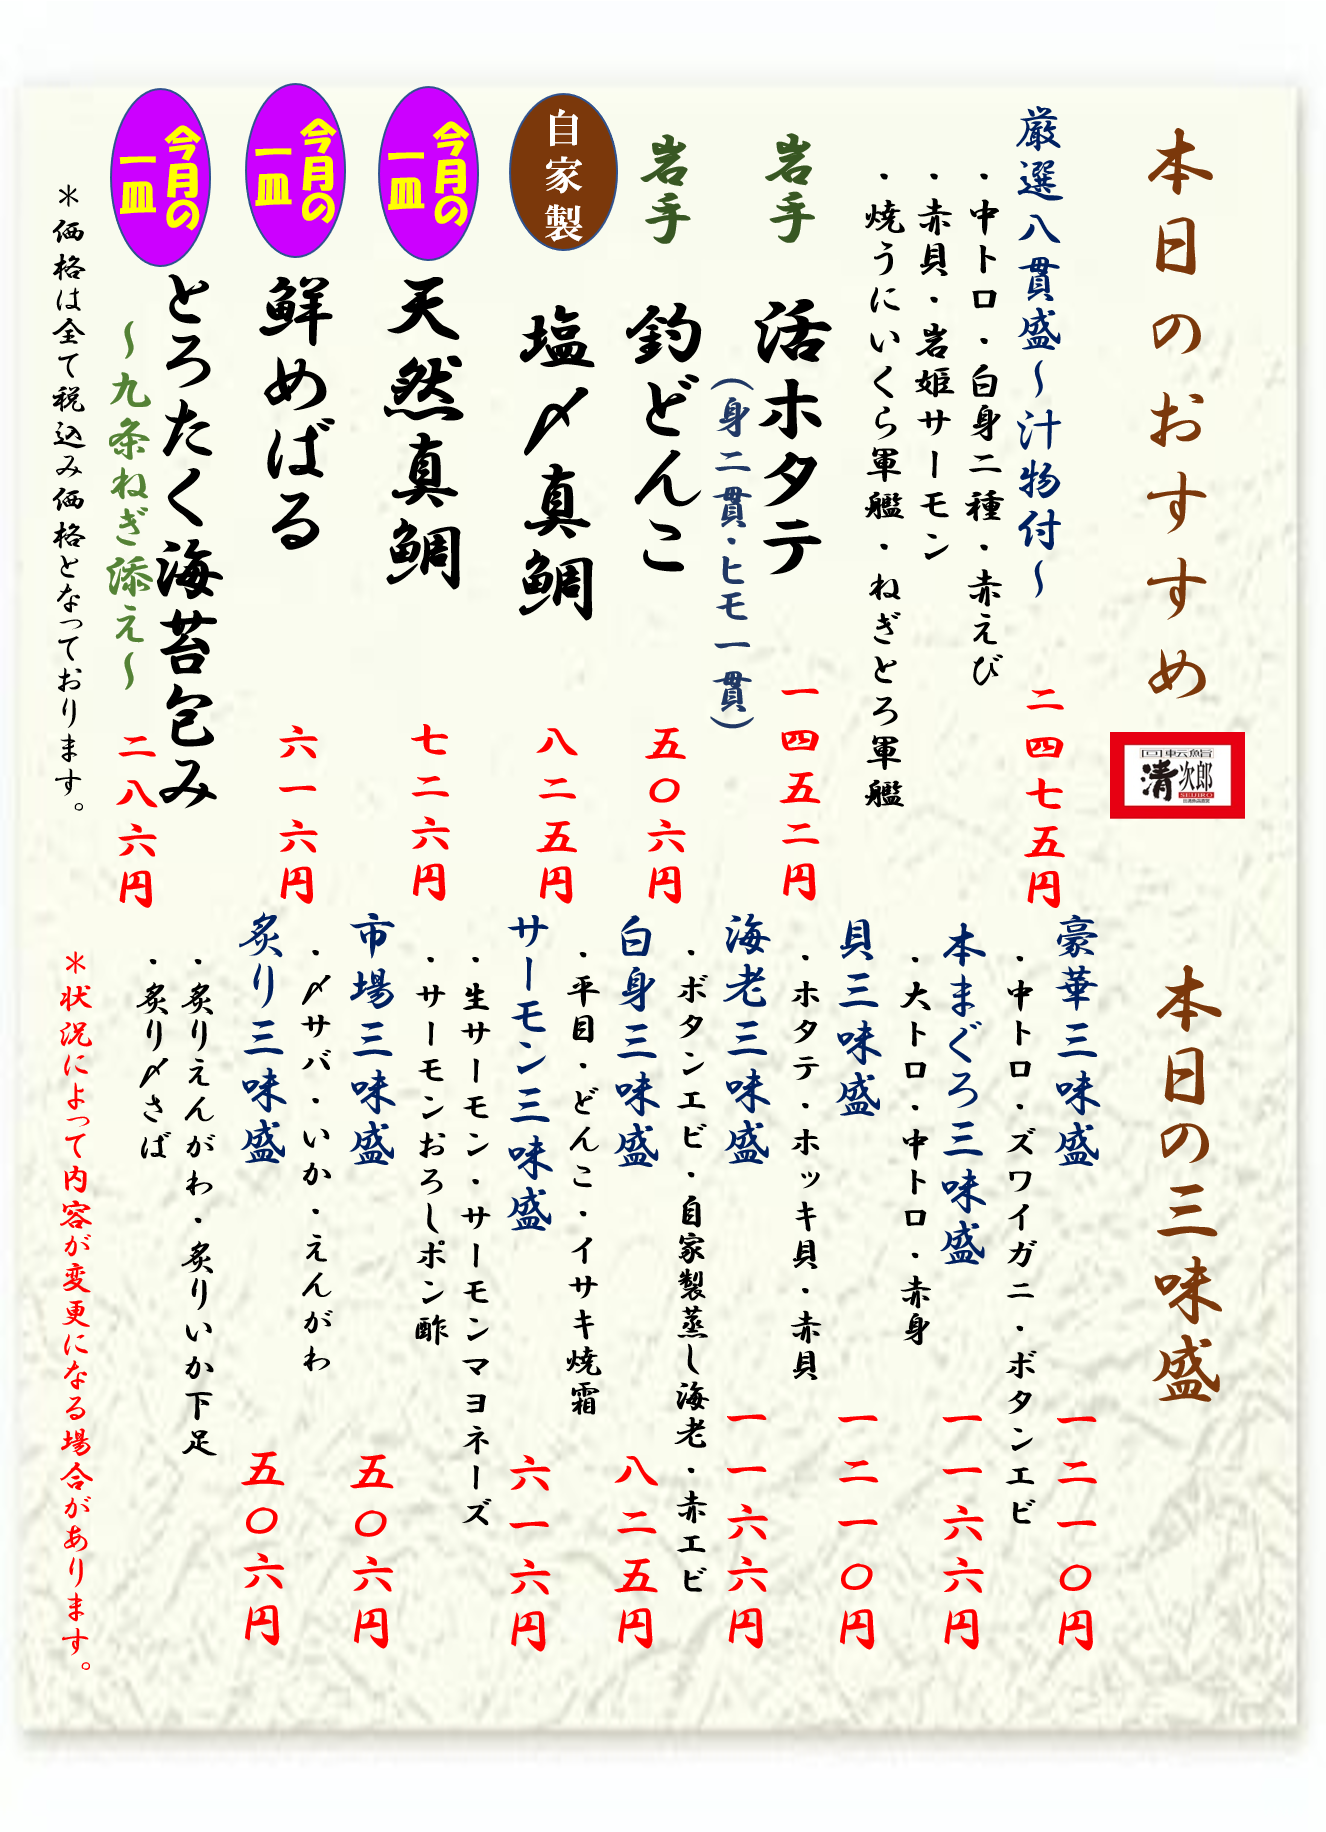 本日のおすすめ
回転鮨
清次郎
SEIJIRO
厳選八貫盛～汁物付～
二四七五円
・中トロ・白身二種・赤えび
・赤貝・岩姫サーモン
・焼うにいくら軍艦・ねぎとろ軍艦
岩手
活ホタテ
一四五二円
（身二貫・ヒモ一貫）
岩手
釣どんこ
五〇六円
自家製
塩〆真鯛
八二五円
今月の
一皿
天然真鯛
七二六円
今月の
一皿
鮮めばる
六一六円
今月の
一皿
とろたく海苔包み
～九条ねぎ添え～
二八六円
＊価格は全て税込み価格となっております。
本日の三味盛
豪華三味盛
一二一〇円
・中トロ・ズワイガニ・ボタンエビ
本まぐろ三味盛
一一六六円
・大トロ・中トロ・赤身
貝三味盛
一二一〇円
・ホタテ・ホッキ貝・赤貝
海老三味盛
一一六六円
・ボタンエビ・自家製蒸し海老・赤エビ
白身三味盛
八二五円
・平目・どんこ・イサキ焼霜
サーモン三味盛
六一六円
・生サーモン・サーモンマヨネーズ
・サーモンおろしポン酢
市場三味盛
五〇六円
・〆サバ・いか・えんがわ
炙り三味盛
五〇六円
・炙りえんがわ・炙りいか下足
・炙り〆さば
＊状況によって内容が変更になる場合があります。